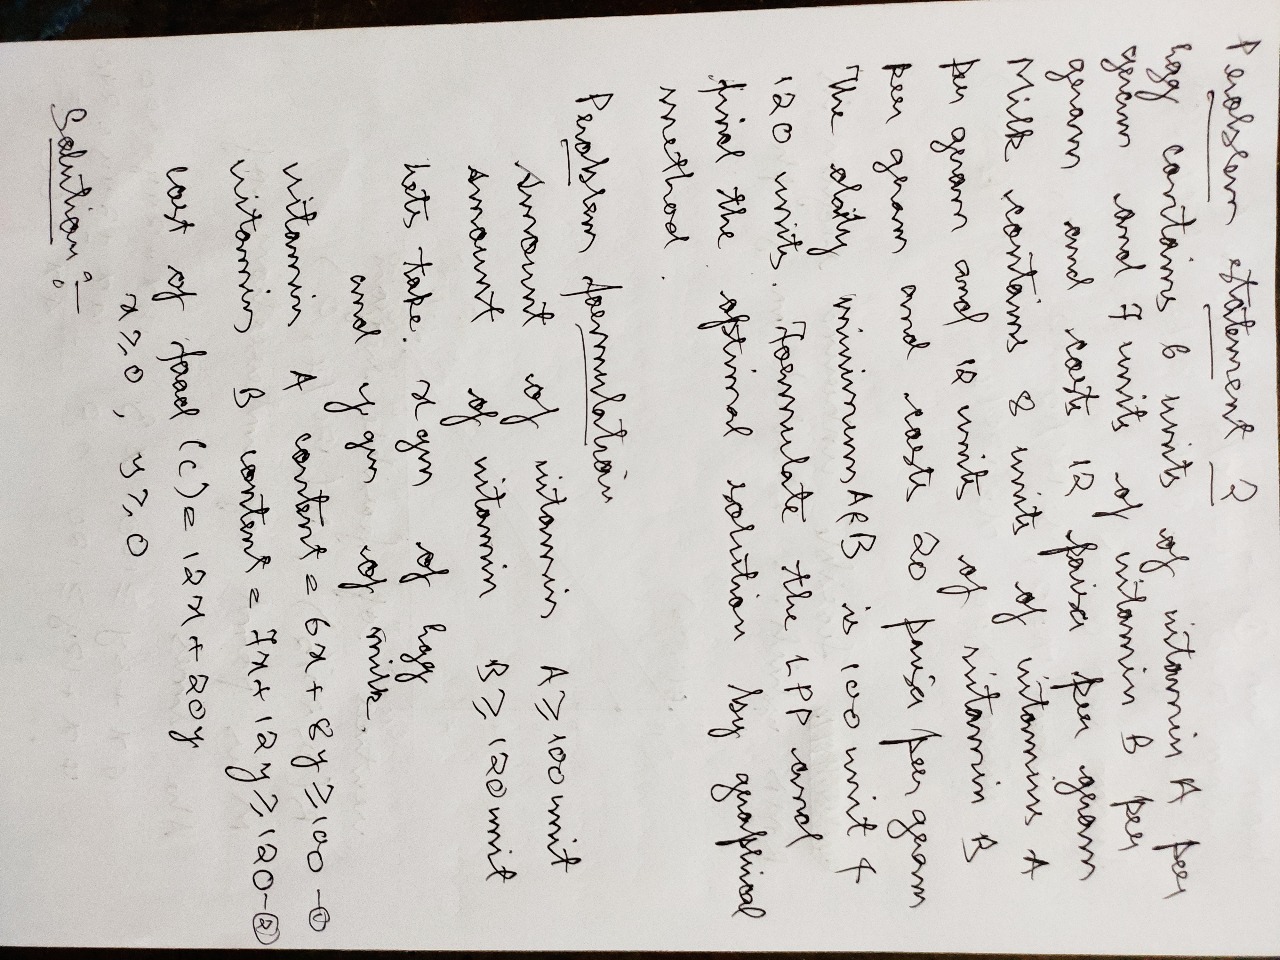 Problem statement 2
Egg contains 6 units of vitamin A per
gram and 7 units of vitamin B per
gram and costs 12 paisa per gram
Milk contains 8 units of vitamins A
per gram and 12 units of vitamin B
per gram and costs 20 paisa per gram
The daily minimum A & B is 100 unit &
120 units. Formulate the LPP and
find the optimal solution by graphical
method.
Problem formulation
Amount of vitamin A ≥ 100 unit
Amount of vitamin B ≥ 120 unit
Lets take. x gm of Egg
and y gm of milk.
vitamin A content = 6x + 8y ≥ 100 - ①
vitamin B content = 7x + 12y ≥ 120 - ②
cost of food (C) = 12x + 20y
x ≥ 0, y ≥ 0
Solution :-